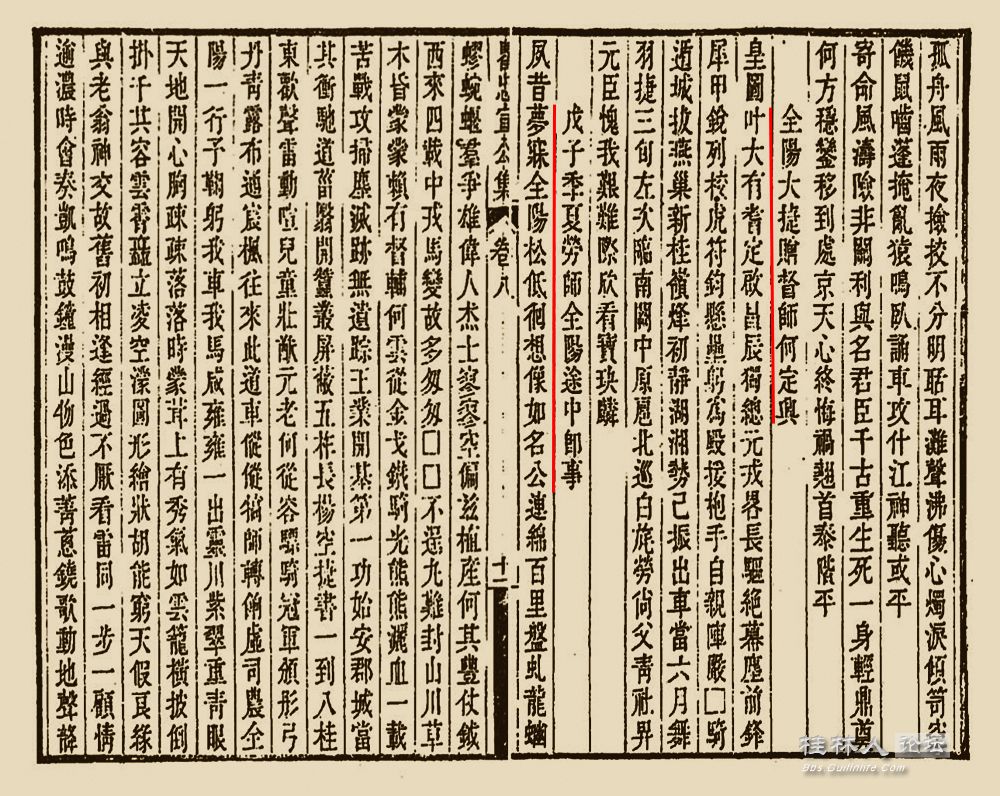 孤舟風雨夜撿挍不分明聒耳灘聲沸傷心燭淚傾笥空
饑鼠嚙蓬掩亂猿鳴臥誦車攻什江神聽或平
寄命風濤險非關利與名君臣千古重生死一身輕鼎奠
何方穩鑾移到處京天心終悔禍翹首泰階平
全陽大捷贈督師何定興
皇圖叶大有耆定啟昌辰獨總元戎畧長驅絶幕塵前鋒
犀甲銳列校虎符鈞懸壘躬為殿援枹手自親陣嚴□騎
遁城拔燕巢新桂嶺烽初靜湖湘勢已振出車當六月舞
羽捷三旬左次臨南闕中原慮北巡白旄勞尚父青社畀
元臣愧我艱難際欣看寶玦麟
戊子季夏勞師全陽途中即事
夙昔夢寐全陽松低徊想像如名公連綿百里盤虬龍蟠
瞿忠宣公集 卷八 十一
蟉蜿蜒羣爭雄偉人杰士寥寥空偏兹植產何其豐仗鉞
西來四載中戎馬變故多匆匆□□不逞九難封山川草
木皆蒙蒙賴有督輔何雲從金戈鐵騎光熊熊灑血一載
苦戰攻掃塵滅跡無遺踪王業開基第一功始安郡城當
其衝馳道葘翳開蠶叢屏蔽五柞長楊空捷書一到八桂
東歡聲雷動喧兒童壯猷元老何從容驃騎冠軍頒彤弓
丹青露布通宸楓往來此道車傱傱犒師轉餉虛司農全
陽一行予鞠躬我車我馬咸雍雍一出靈川紫翠重青眼
天地開心胸疎疎落落時蒙茸上有秀氣如雲籠橫披倒
掛千其容雲霄矗立凌空濛圖形繪狀胡能窮天假良緣
與老翁神交故舊初相逢經過不厭看雷同一步一顧情
逾濃時會奏凱鳴鼓鐘漫山物色添菁蔥鐃歌動地聲韸
桂林人 论坛
Bbs.Guilinlife.Com